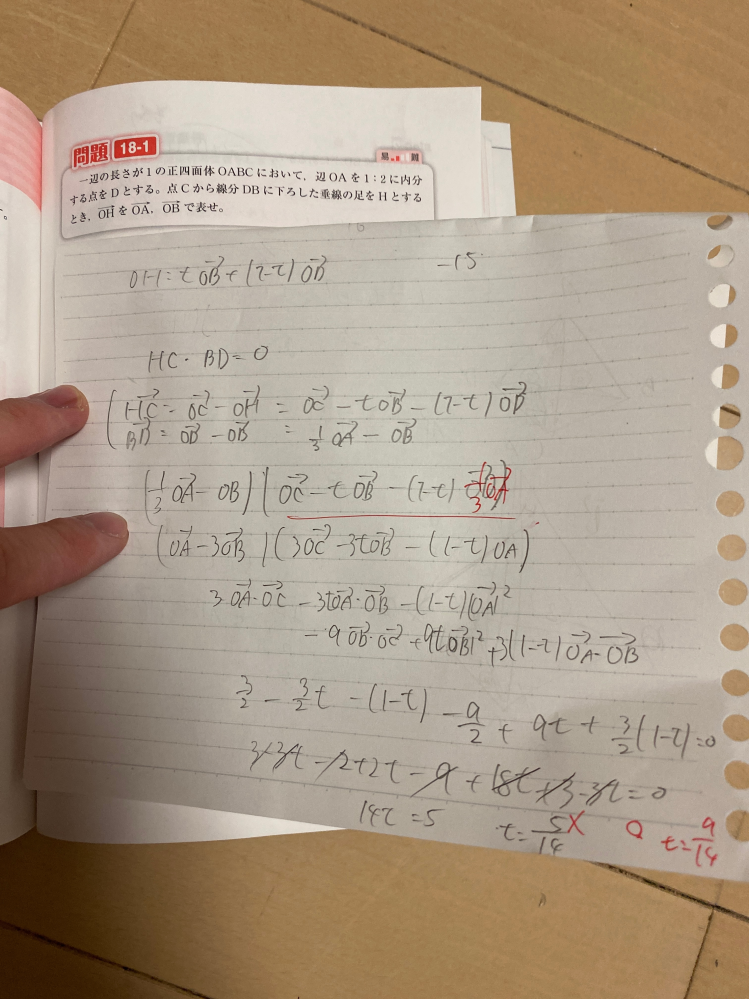 問題 18-1
易 難
一辺の長さが1の正四面体OABCにおいて,辺OAを1:2に内分
する点をDとする。点Cから線分DBに下ろした垂線の足をHとする
とき,OH→をOA→,OB→で表せ。
OH = tOB→ + (1-t)OB→
-15
HC・BD = 0
HC→ = OC→ - OH→ = OC→ - tOB→ - (1-t)OD→
BD→ = OD→ - OB→ = 1/3 OA→ - OB→
(1/3 OA→ - OB)(OC→ - tOB→ - (1-t) 1/3 OA→)
(OA→ - 3OB→)(3OC→ - 3tOB→ - (1-t)OA)
3OA→・OC→ - 3tOA→・OB→ - (1-t)|OA→|²
- 9OB→・OC→ + 9t|OB→|² + 3(1-t)OA→・OB→
3/2 - 3/2 t - (1-t) - 9/2 + 9t + 3/2 (1-t) = 0
3 - 3t - 2 + 2t - 9 + 18t + 3 - 3t = 0
14t = 5
t = 5/14 ×
t = 9/14